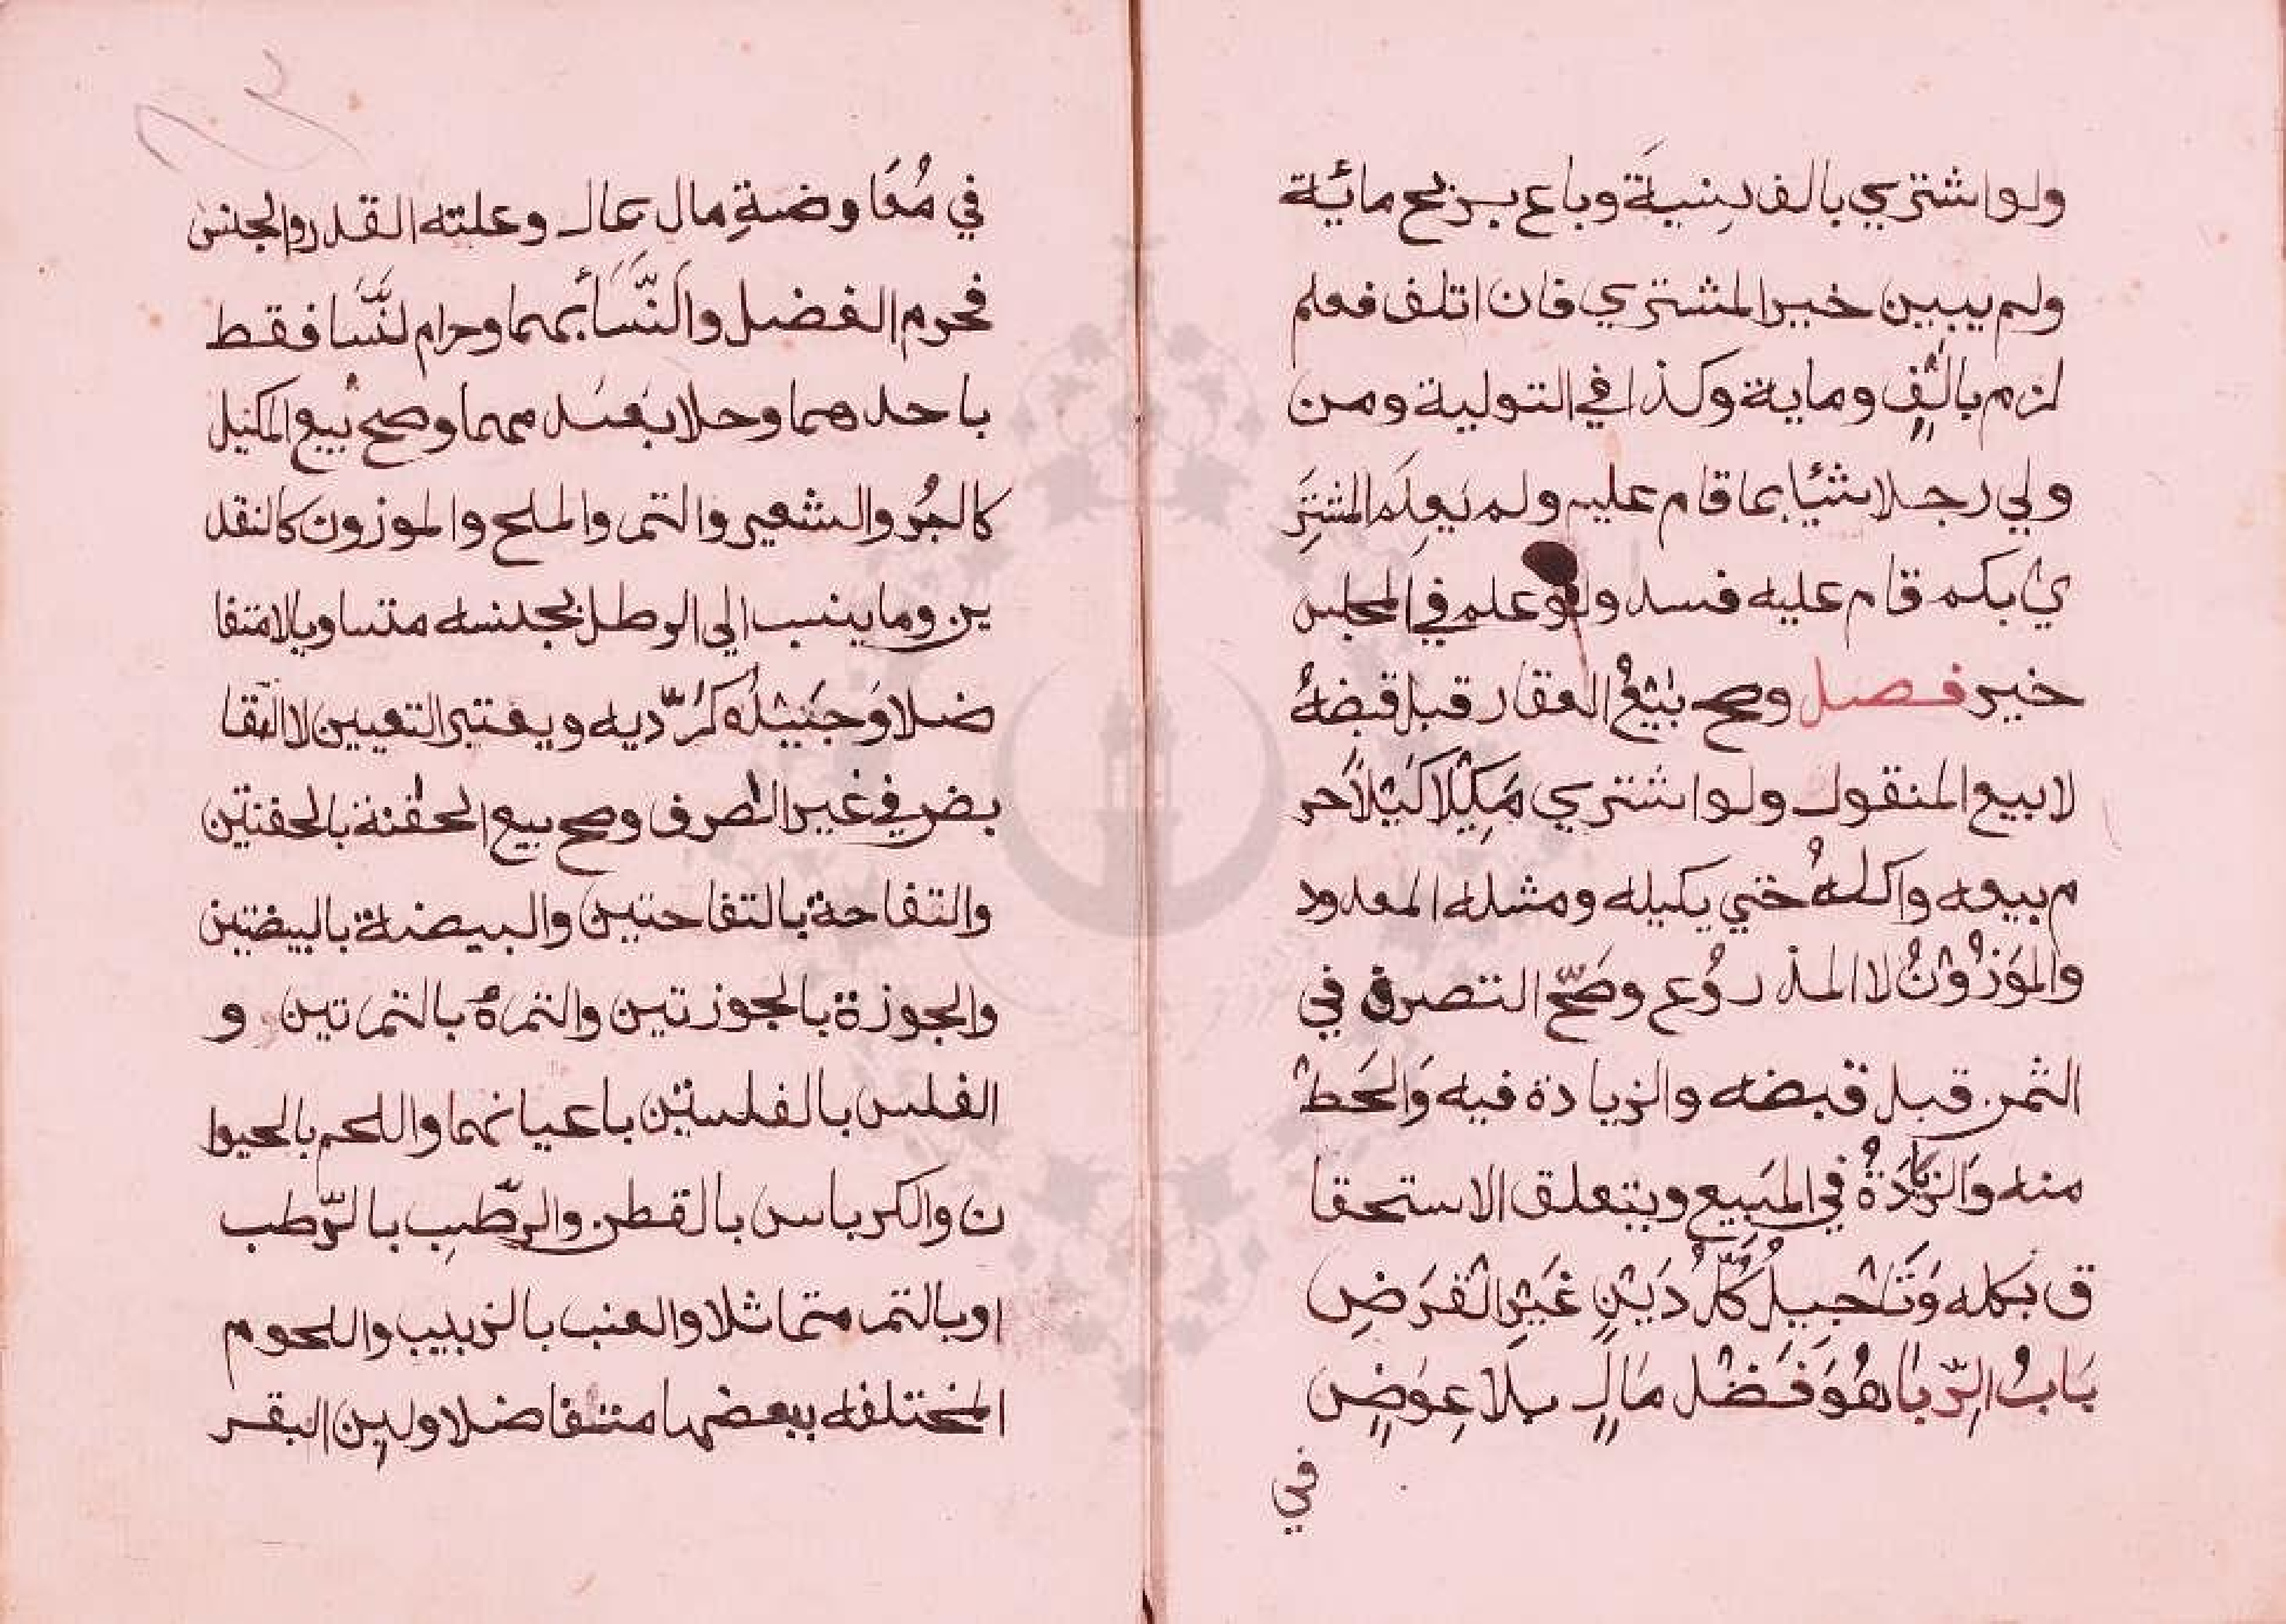 ولو اشتري بالف بنسية وباع بربح مائية
ولم يبين خير المشتري فان اتلف فعلم
لزم بالفٍ وماية وكذا في التولية ومن
ولي رجلا شئيا بما قام عليه ولم يَعلَم المشترَ
ي بكم قام عليه فسد ولو علم في المجلس
خير فصل وصح بيْعُ العقار قبل قبضهُ
لا بيع المنقول ولو اشتري مَكِيْلًا كَيْلًا حر
م بيعه واكلهُ حتي يكيله ومثله المعدود
والمَوْزُوْنُ لا المذروُع وصَحّ التصرف في
الثمن قبل قبضه والزيادة فيه وَالحَطْ
منه وَالزيَادَةُ في المَبيع ويتعلق الاستحقا
ق بكله وَتَاْجِيلُ كُلّ دَيْنٍ غَيْرِ القَرَضِ
بَابُ الرِّبَا هُوَ فَضْل مَالٍ بِلَا عِوَضٍ
في
في مُعَاوضةِ مال بمال وعلته القدر والجنس
فحرم الفضل والنَّسَأ بهما وحرام لنَّسَا فقط
باحدهما وحلا بعَدمهما وصح بَيع المكيل
كالبُر والشعير والتمر والملح والموزون كالنقد
ين وما ينسب الي الرطل بجنسه متساويا لا متفا
ضلا وَجَيّدُه كَرَدّيه ويعتبر التعيين لا التقا
بض في غير الصرف وصح بيع الحفنة بالحفنتين
والتفاحة بالتفاحتين والبيضة بالبيضتين
والجوزة بالجوزتين والتمرة بالتمرتين و
الفلس بالفلسين باعيانهما واللحم بالحيوا
ن والكرباس بالقطن والرطب بالرّطب
او بالتمر متماثلا والعنب بالزبيب واللحوم
المختلفه ببعضها متفاضلا ولبن البقر